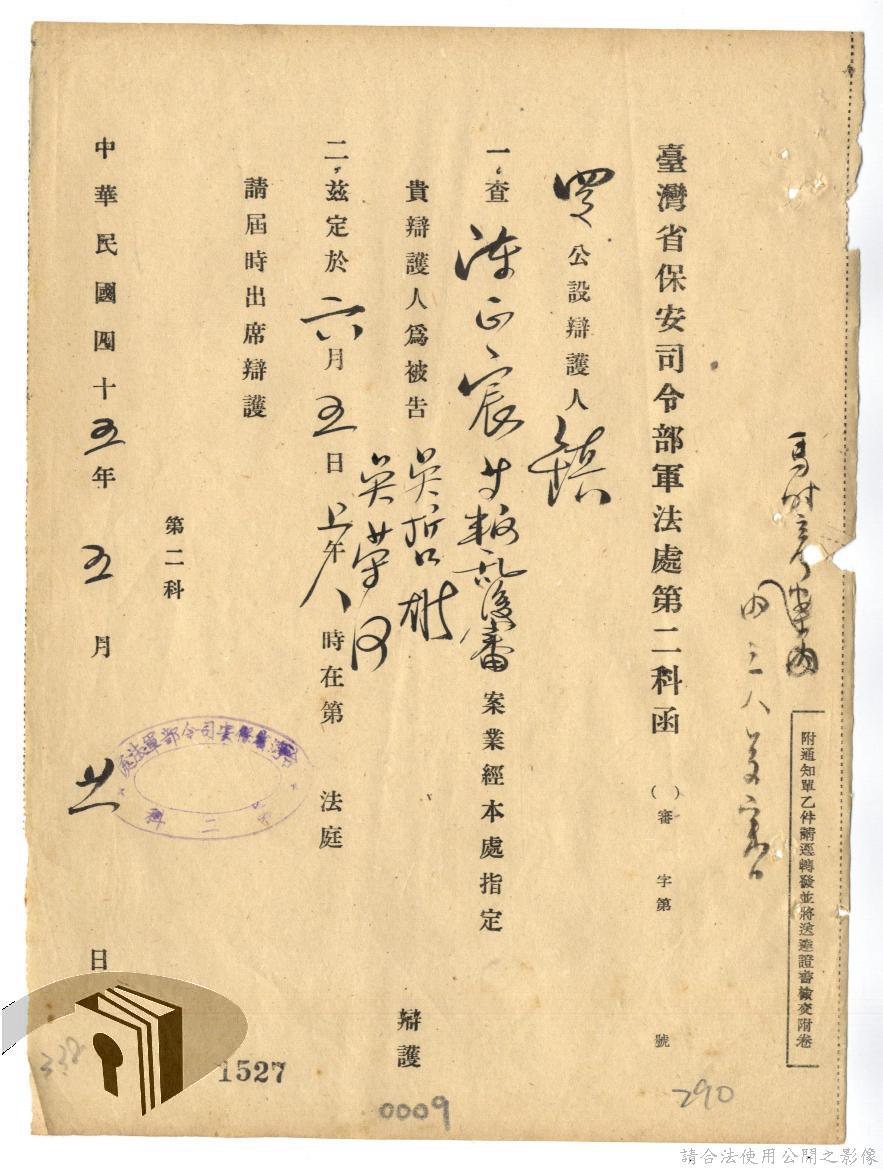 附通知單乙件請逕轉發並將送達證書繳交附卷
臺灣省保安司令部軍法處第二科函
()審字第號
公設辯護人鎮
一、查陳正宸等叛亂復審案業經本處指定
貴辯護人爲被告吳哲雄辯護
吳榮河
二、茲定於六月五日上午八時在第法庭
請屆時出席辯護
第二科
臺灣省保安司令部軍法處
第二科
中華民國四十五年五月卅日
338
1527
0009
290
請合法使用公開之影像